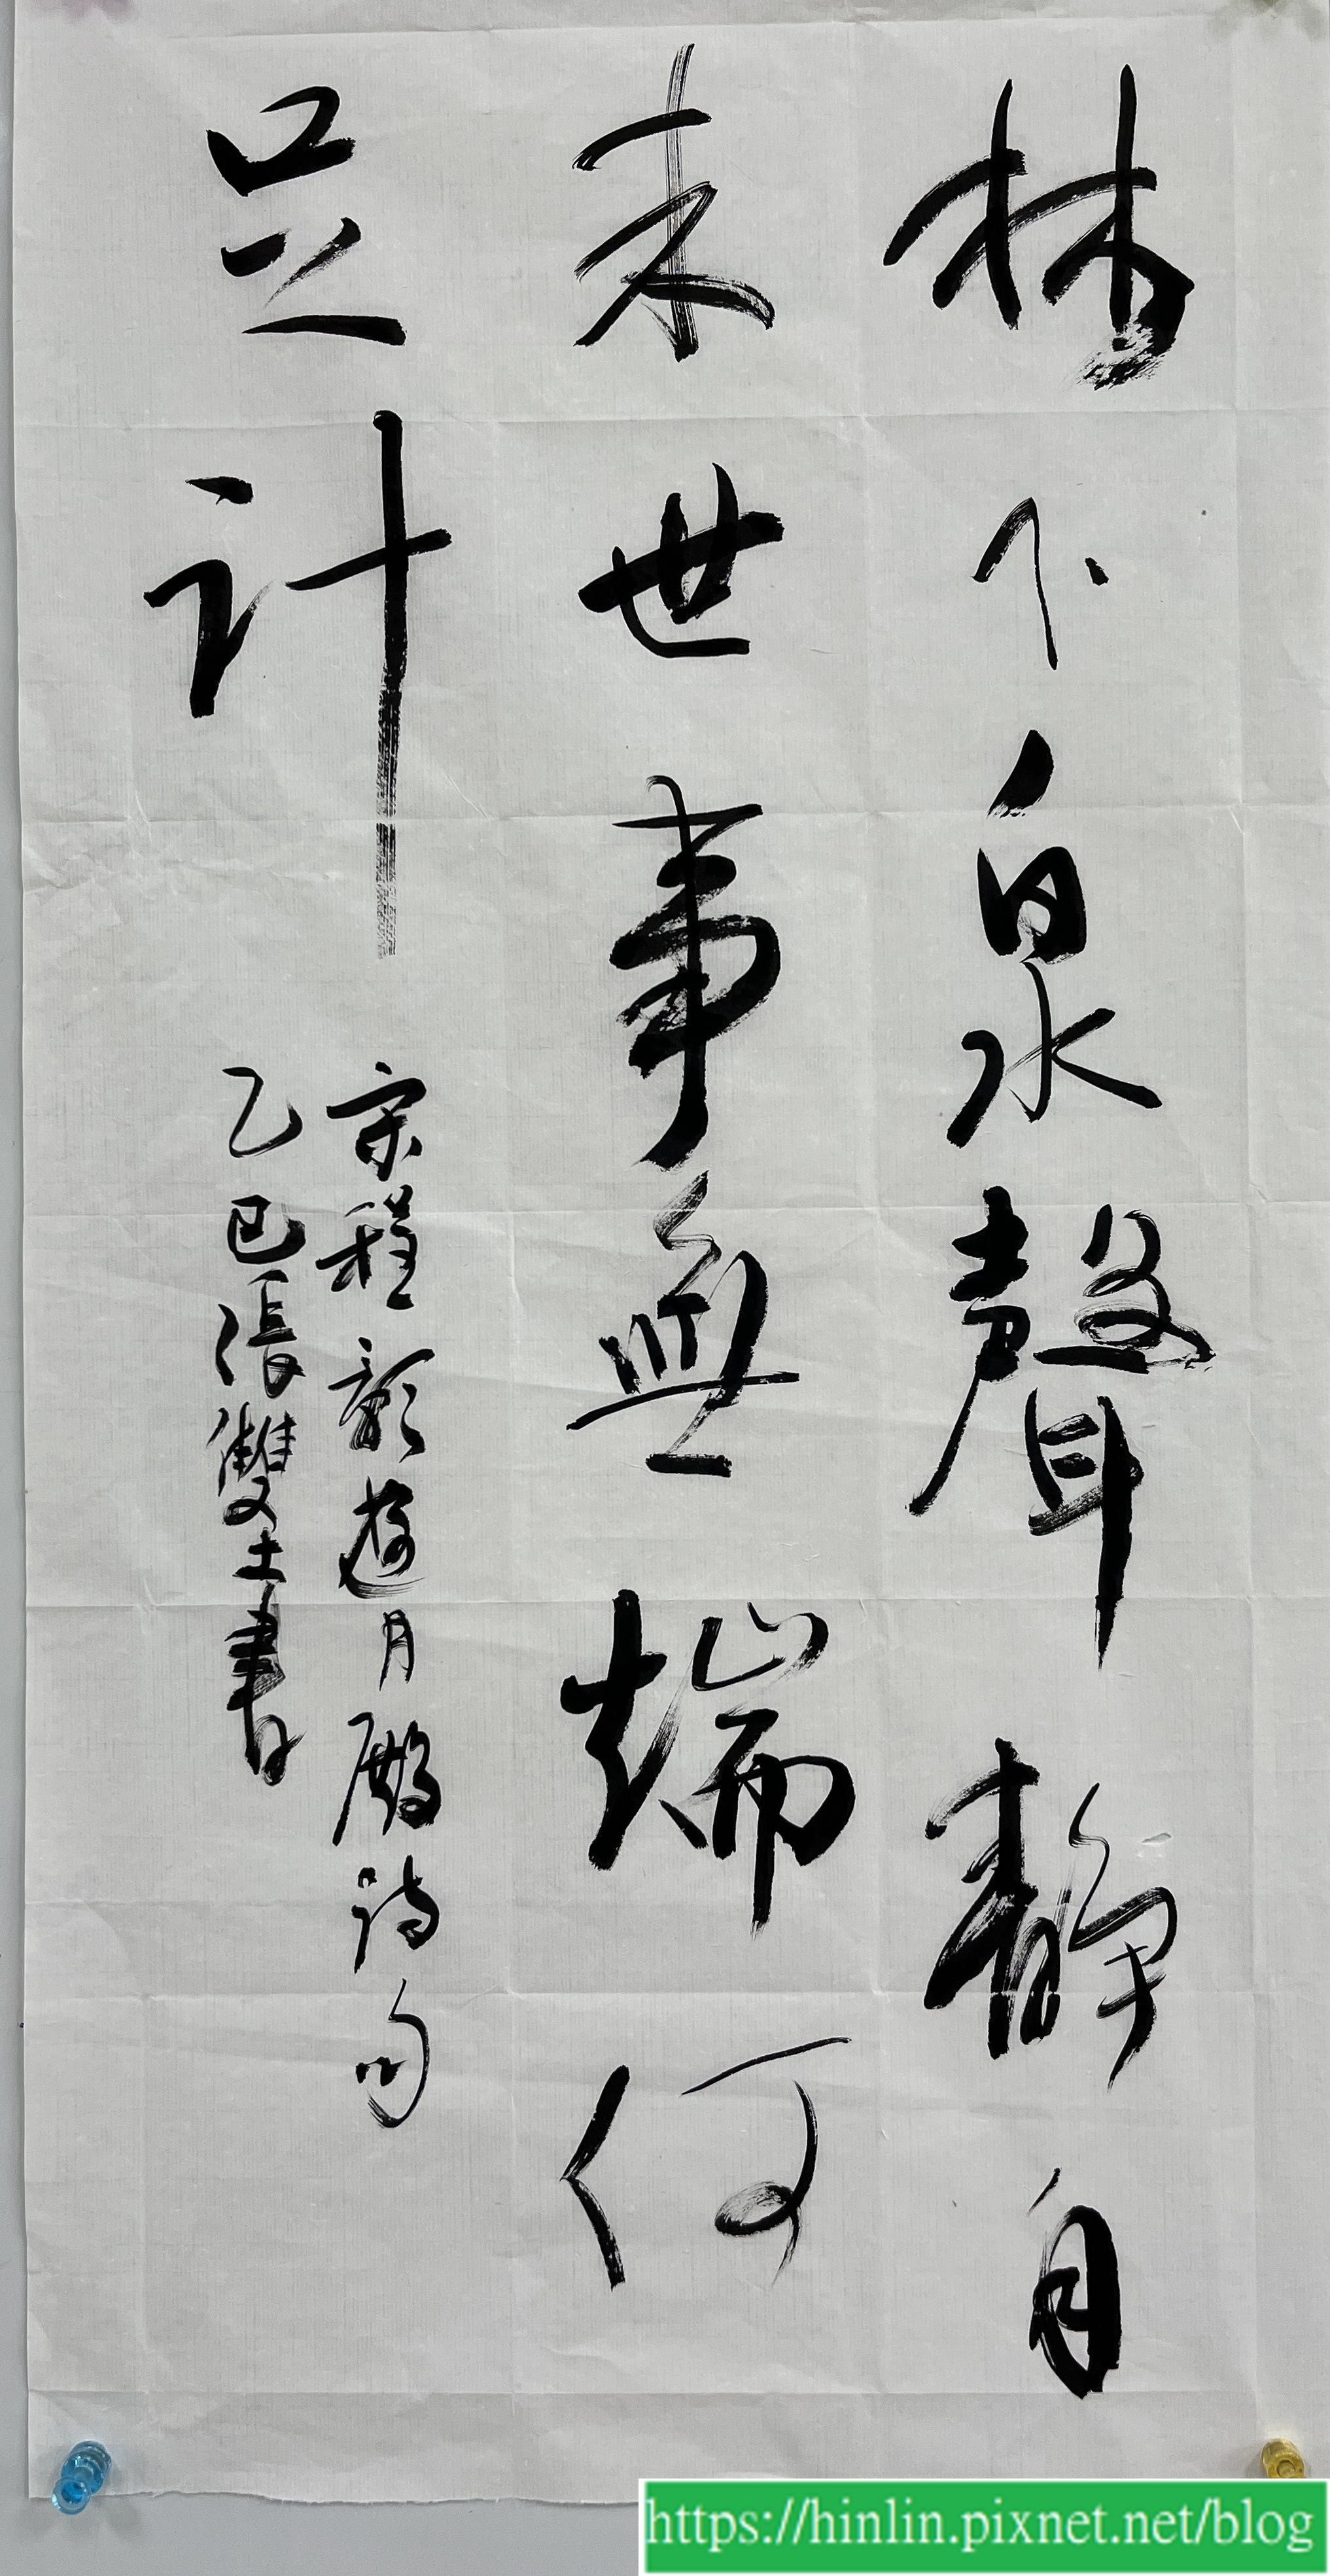 林下泉聲靜自
來世事無端何
足計
宋程顥遊月殿詩句
乙巳張雙土書
https://hinlin.pixnet.net/blog